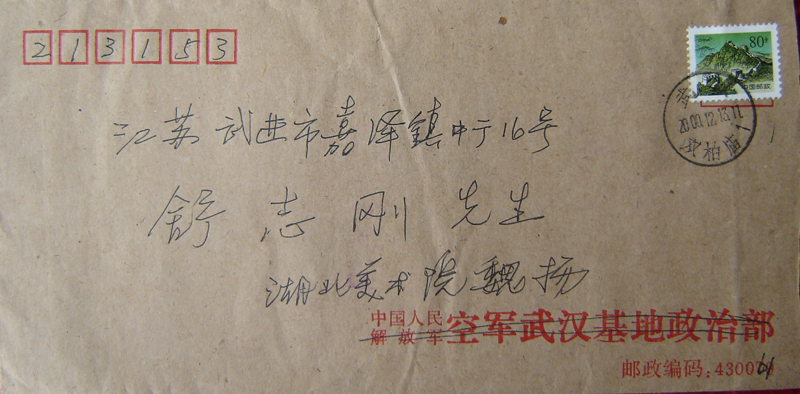 213153
80分
中国邮政
2000.12.13.11
江苏武进市嘉泽镇中于16号
舒志刚先生
湖北美术院魏扬
中国人民解放军 空军武汉基地政治部
邮政编码:430061